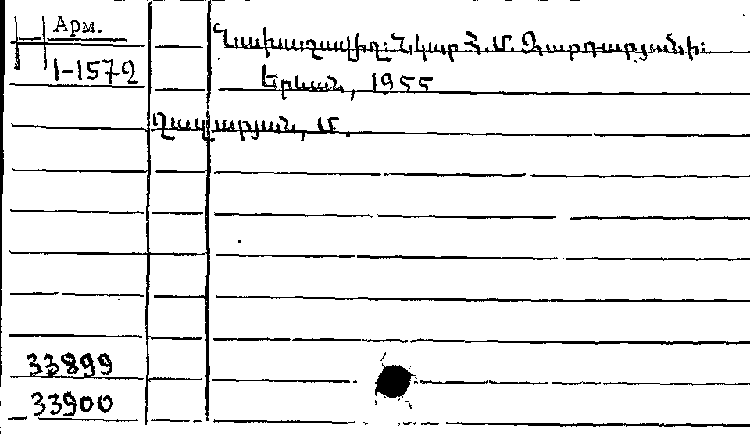 Арм.
1-1572
Նախագավիղ: Նկար Հ. Մ. Զարդարյանի:
Երևան, 1955
Ղազարյան, Մ.
33899
33900